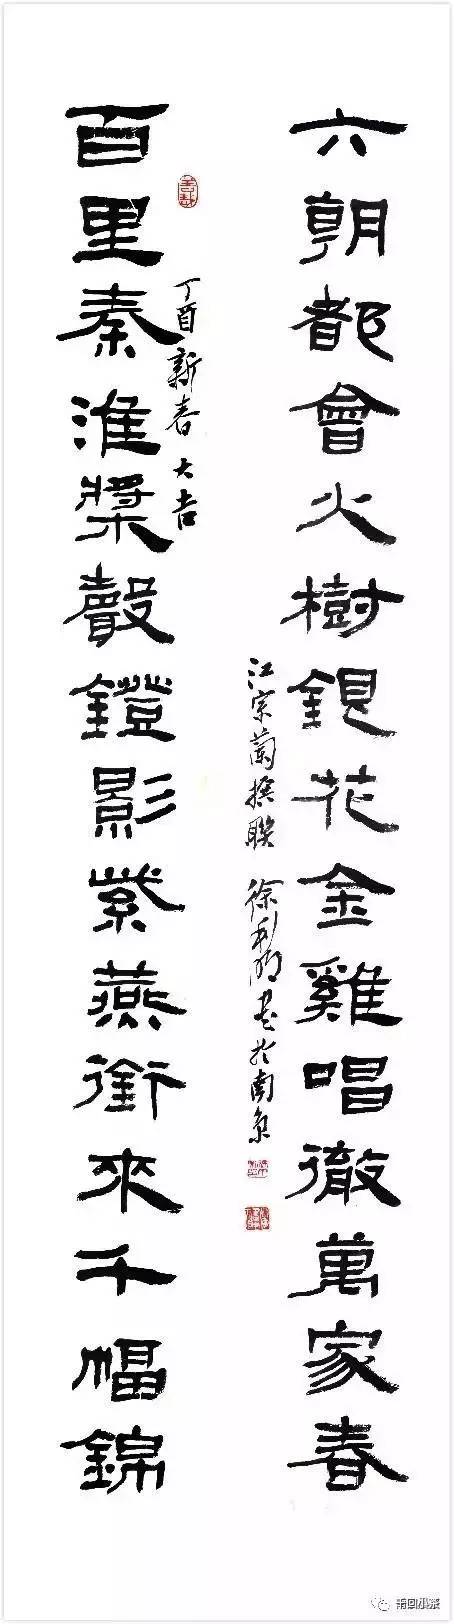 六朝都會火樹銀花金雞唱徹萬家春
百里秦淮槳聲鐙影紫燕銜來千幅錦
丁酉新春大吉
江宗蘭撰聯 徐利明書於南京